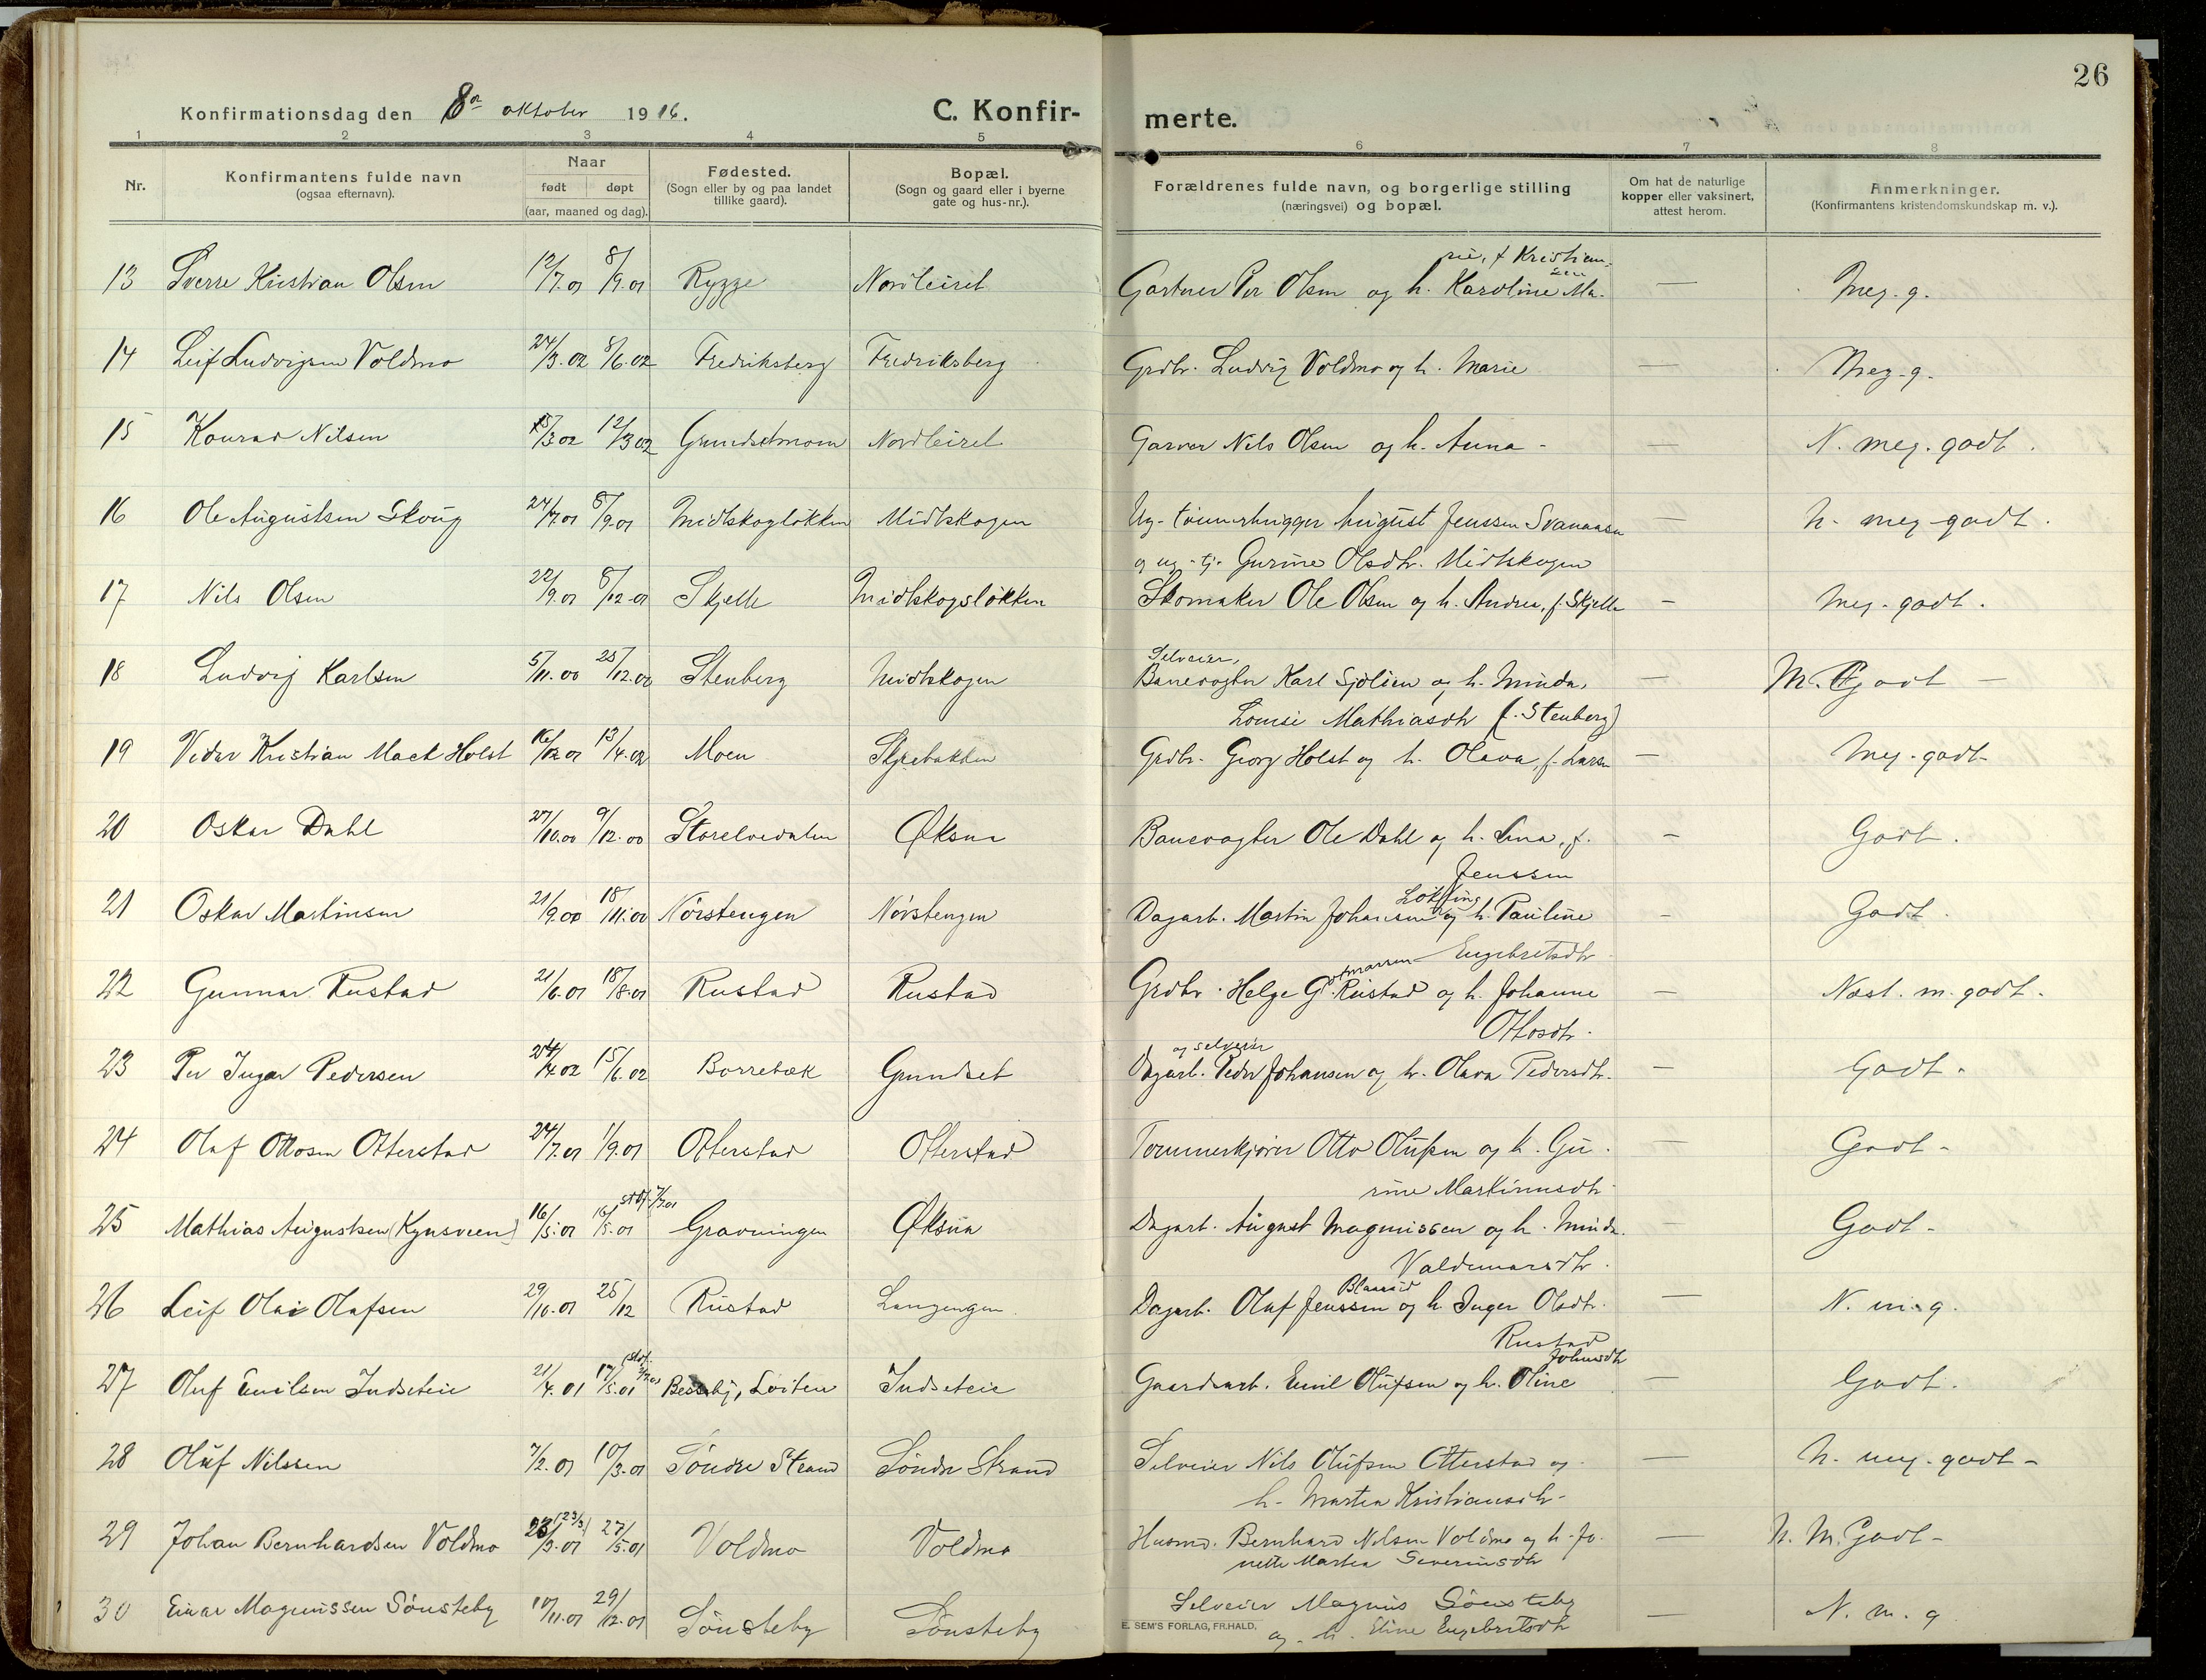 26
Konfirmationsdag den 8de oktober 1916.
C. Konfir-
merte.
1 2 3 4 5 6 7 8
Nr.
Konfirmantens fulde navn
(ogsaa efternavn).
Naar
født døpt
(aar, maaned og dag).
Fødested.
(Sogn eller by og paa landet
tillike gaard).
Bopæl.
(Sogn og gaard eller i byerne
gate og hus-nr.).
Forældrenes fulde navn, og borgerlige stilling
(næringsvei) og bopæl.
Om hat de naturlige
kopper eller vaksinert,
attest herom.
Anmerkninger.
(Konfirmantens kristendomskundskap m. v.).
rie, f Kristian-
sen
13 Sverre Kristian Olsen 12/7.01 8/9.01 Rygge Nordleiret Gartner Per Olsen og h. Karoline Ma- — Meg. g.
14 Leif Ludvigsen Voldmo 24/3.02 8/6.02 Fredriksberg Fredriksberg Grdbr. Ludvig Voldmo og h. Marie — Meg. g.
15 Konrad Nilsen /3 02 12/3 02 Grundsetmoen Nordleiret Garver Nils Olsen og h. Anna - — N. meg. godt.
16 Ole Augustsen Skoug 24/7.01 8/9.01 Midtskogløkken Midtskogen Ug. tømmerhugger August Jenssen Svanaasen — N. meg godt.
og ug. tj. Gurine Olsdtr. Midtskogen
17 Nils Olsen 22/9.01 8/12.01 Skjelle Midtskogsløkken Skomaker Ole Olsen og h. Andrea, f. Skjelle — Meg. godt.
Selveier,
18 Ludvig Karlsen 5/11.00 25/12.00 Stenberg Midtskogen Banevogter Karl Sjølien og h. Minda, — M. Godt —
Lovise Mathiasdtr (f. Stenberg)
19 Vidar Kristian Mack Holst 16/02.01 13/4.02 Moen Skjærbakken Grdbr. Georg Holst og h. Olava, f. Larsen — Meg. godt-
20 Oskar Dahl 27/10.00 9/12.00 Storelvedalen Øksna Banevogter Ole Dahl og h. Lina, f. — Godt.
Jenssen
Løkting
21 Oskar Martinsen 21/9.00 18/11.00 Nörstengen Nörstengen Dagarb. Martin Johansen og h. Pauline — Godt.
Engebretsdtr
22 Gunnar Rustad 21/6.01 18/8.01 Rustad Rustad Grdbr. Helge G. Rustad og h. Johanne — Næst. m. godt.
Ottosdtr.
og selveier
23 Per Ingar Pedersen 24/4.02 15/6.02 Borrebæk Grundset Dagarb. Peder Johansen og h. Olava Pedersdtr. — Godt.
24 Olaf Ottosen Otterstad 24/7.01 1/9.01 Otterstad Otterstad Tømmerkjører Otto Olufsen og h. Gu- — Godt-
rine Martinusdtr
stdf. 7/7.01
25 Mathias Augustsen (Kynsveen) 16/5.01 16/5.01 Gravningen Øksna Dagarb. August Magnussen og h. Minda — Godt-
Valdemarsdtr.
26 Leif Olai Olafsen 29/10.01 25/12 Rustad Langengen Dagarb. Oluf Jenssen og h. Inger Olsdtr. — N. m. g.
Rustad
Johnsdtr
27 Oluf Emilsen Indseteie 21/4.01 17/5.01 Løiten Indseteie Gaardsarb. Emil Olufsen og h. Oline — Godt.
28 Oluf Nilssen 7/2.01 10/3.01 Söndre Strand Söndre Strand Selveier Nils Olufsen Otterstad og — N. meg. godt-
h. Martea Kristiansdtr-
29 Johan Bernhardsen Voldmo 23/3.01 (23/3) 27/5.01 Voldmo Voldmo Husmd. Bernhard Nilsen Voldmo og h. Jo- — N. M. Godt-
nette Martea Severinsdtr
30 Einar Magnussen Sönsteby 10/11.01 29/12.01 Sönsteby Sönsteby Selveier Magnus Sönsteby — N. m. g
og h. Eline Engebretsdtr
E. SEM'S FORLAG, FR.HALD.